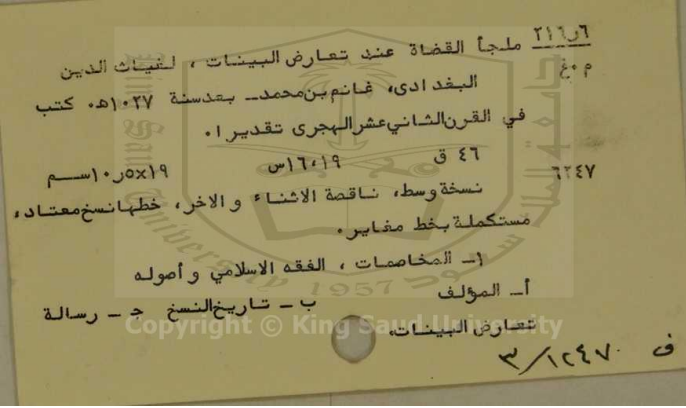 ٢١٦٫٦ ملجأ القضاة عند تعارض البينات ، لغياث الدين
م ٠غ البغدادى، غانم بن محمد ـ بعد سنة ١٠٢٧هـ. كتب
في القرن الثاني عشر الهجرى تقديرا ٠
٦٢٤٧ ٤٦ ق ١٦،١٩س ١٩×١٠٫٥ســم
نسخة وسط، ناقصة الاثناء و الاخر، خطها نسخ معتاد،
مستكملة بخط مغاير ٠
١ـ المخاصمات ، الفقه الاسلامي و أصوله
أ ـ المؤلف ب ـ تاريخ النسخ ج ـ رسالة
تعارض البينات.
ف ١٢٤٧/٣
جامعة الملك سعود
King Saud University
1957
Copyright © King Saud University